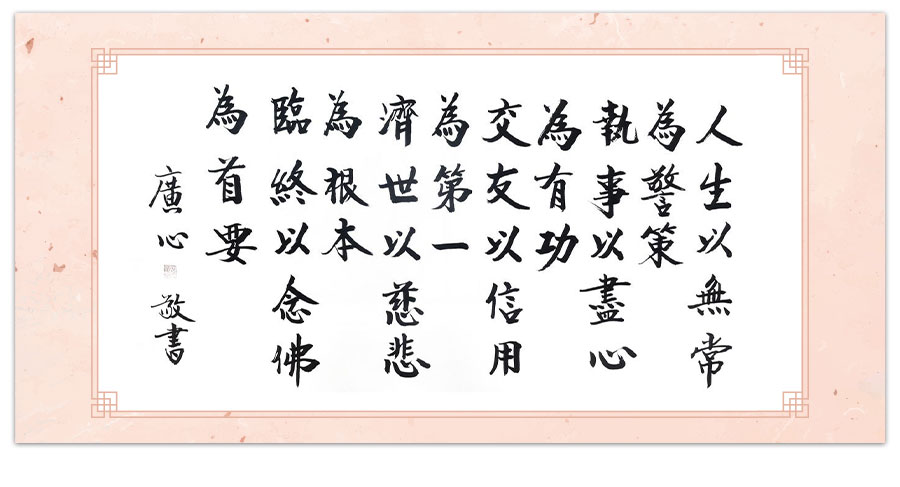 人生以無常
為警策
執事以盡心
為有功
交友以信用
為第一
濟世以慈悲
為根本
臨終以念佛
為首要
廣心 敬書